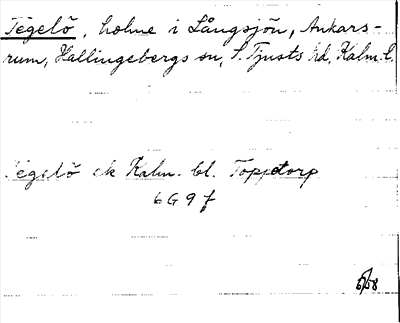 Tegelö, holme i Långsjön, Ankars-
rum, Hallingebergs sn, S. Tjusts hd, Kalm. l.
Tegelö ek Kalm. bl. Toppetorp
6 G 9 f